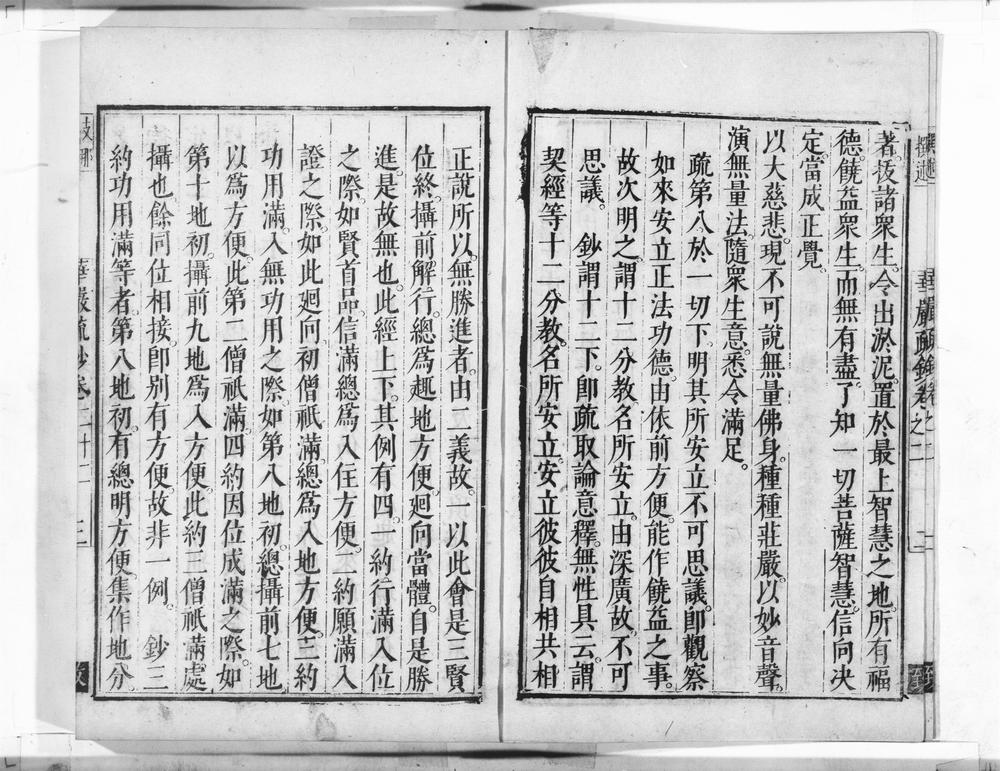 著拔諸衆生令出淤泥置於最上智慧之地所有福
德饒益衆生而無有盡了知一切菩薩智慧信向决
定當成正覺
以大慈悲現不可說無量佛身種種莊嚴以妙音聲
演無量法隨衆生意悉令滿足
疏第八於一切下明其所安立不可思議卽觀察
如來安立正法功德由依前方便能作饒益之事
故次明之謂十二分教名所安立由深廣故不可
思議 鈔謂十二下卽疏取論意釋無性具云謂
契經等十二分教名所安立安立彼彼自相共相
正說所以無勝進者由二義故一以此會是三賢
位終攝前解行總爲趣地方便廻向當體自是勝
進是故無也此經上下其例有四一約行滿入位
之際如賢首品信滿總爲入住方便二約願滿入
證之際如此廻向初僧祇滿總爲入地方便三約
功用滿入無功用之際如第八地初總攝前七地
以爲方便此第二僧祇滿四約因位成滿之際如
第十地初攝前九地爲入方便此約三僧祇滿處
攝也餘同位相接卽别有方便故非一例 鈔三
約功用滿等者第八地初有總明方便集作地分
華嚴疏鈔卷二十二